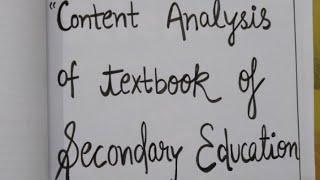 "Content Analysis
of textbook of
Secondary Education